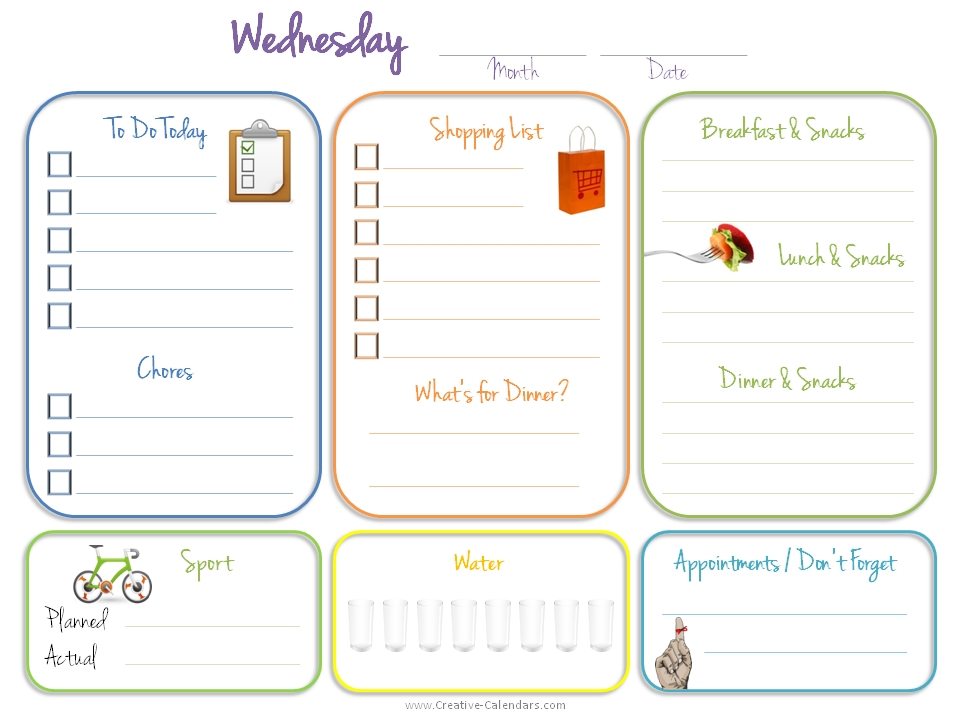 Wednesday
Month Date
To Do Today
Chores
Shopping List
What's for Dinner?
Breakfast & Snacks
Lunch & Snacks
Dinner & Snacks
Sport
Planned
Actual
Water
Appointments / Don't Forget
www.Creative-Calendars.com